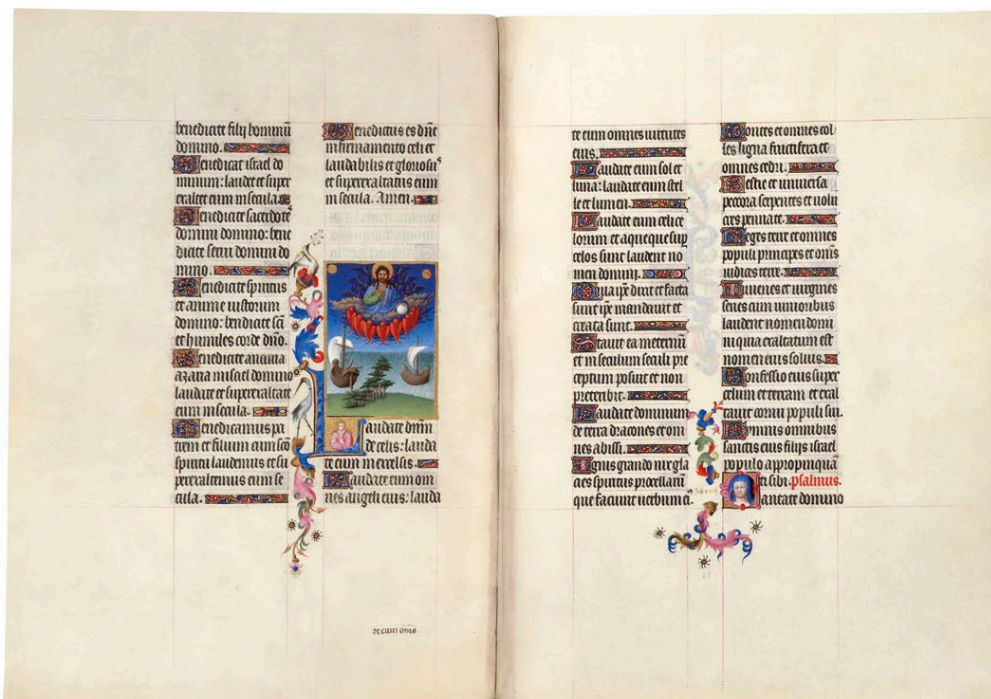 benedicite filij hominū
domino.
Benedicat israel do
minum: laudet et super
exaltet eum in secula.
Benedicite sacerdotes
domini domino: bene
dicite serui domini do
mino.
Benedicite spiritus
et anime iustorum
domino: bendicite scī
et humiles corde dnō.
Benedicite anania
azaria misael domino
laudate et superexaltate
eum in secula.
Benedicamus pa
trem et filium cum scō
spiritu laudemus et su
perexaltemus eum in se
cula.
Benedictus es dn̄e
in firmamento celi et
laudabilis et gloriosus
et superexaltatus eum
in secula. Amen.
Laudate dnm̄
de celis: lauda
te eum in excelsis.
Laudate eum om
nes angeli eius: lauda
te eum om̄s
te eum omnes uirtutes
eius.
Laudate eum sol et
luna: laudate eum stel
le et lumen.
Laudate eum celi ce
lorum et aque que sup
celos sunt laudent no
men domini.
Quia ip̄e dixit et facta
sunt ip̄e mandauit et
creata sunt.
Statuit ea in eternū
et in seculum seculi pre
ceptum posuit et non
preteribit.
Laudate dominum
de terra dracones et om
nes abissi.
Ignis grando nix gla
cies spiritus procellarū
que faciunt uerbum eī.
Montes et omnes col
les ligna fructifera et
omnes cedri.
Bestie et uniuersa
pecora serpentes et uolu
cres pennate.
Reges terre et omnes
populi principes et om̄s
iudices terre.
Iuuenes et uirgines
senes cum iunioribus
laudent nomen domi
ni quia exaltatum est
nomen eius solius.
Confessio eius super
celum et terram et exal
tauit cornu populi sui.
Hymnus omnibus
sanctis eius filijs israel
populo appropinquā
ti sibi. psalmus.
Cantate domino